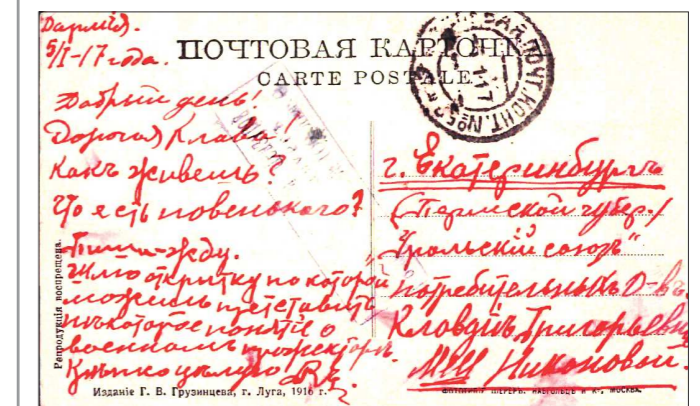 5/I-17 года.
ПОЧТОВАЯ КАРТОЧКА
CARTE POSTALE
Добрый день!
Дорогая Клава!
Какъ живешь?
Что есть новенького?
Пиши-жду.
Шлю открытку по которой
можешь
нѣкоторое понятіе о
военномъ прожекторѣ.
Крѣпко цѣлую
г. Екатеринбургъ
(Пермской губер./
"Уральскій союзъ"
потребительныхъ О-въ
Клавдіи Григорьевнѣ
Никоновой.
Репродукція воспрещена.
Изданіе Г. В. Грузинцева, г. Луга, 1916 г.
ФОТОТИПІЯ ШЕРЕРЪ, НАБГОЛЬЦЪ И Кº, МОСКВА.